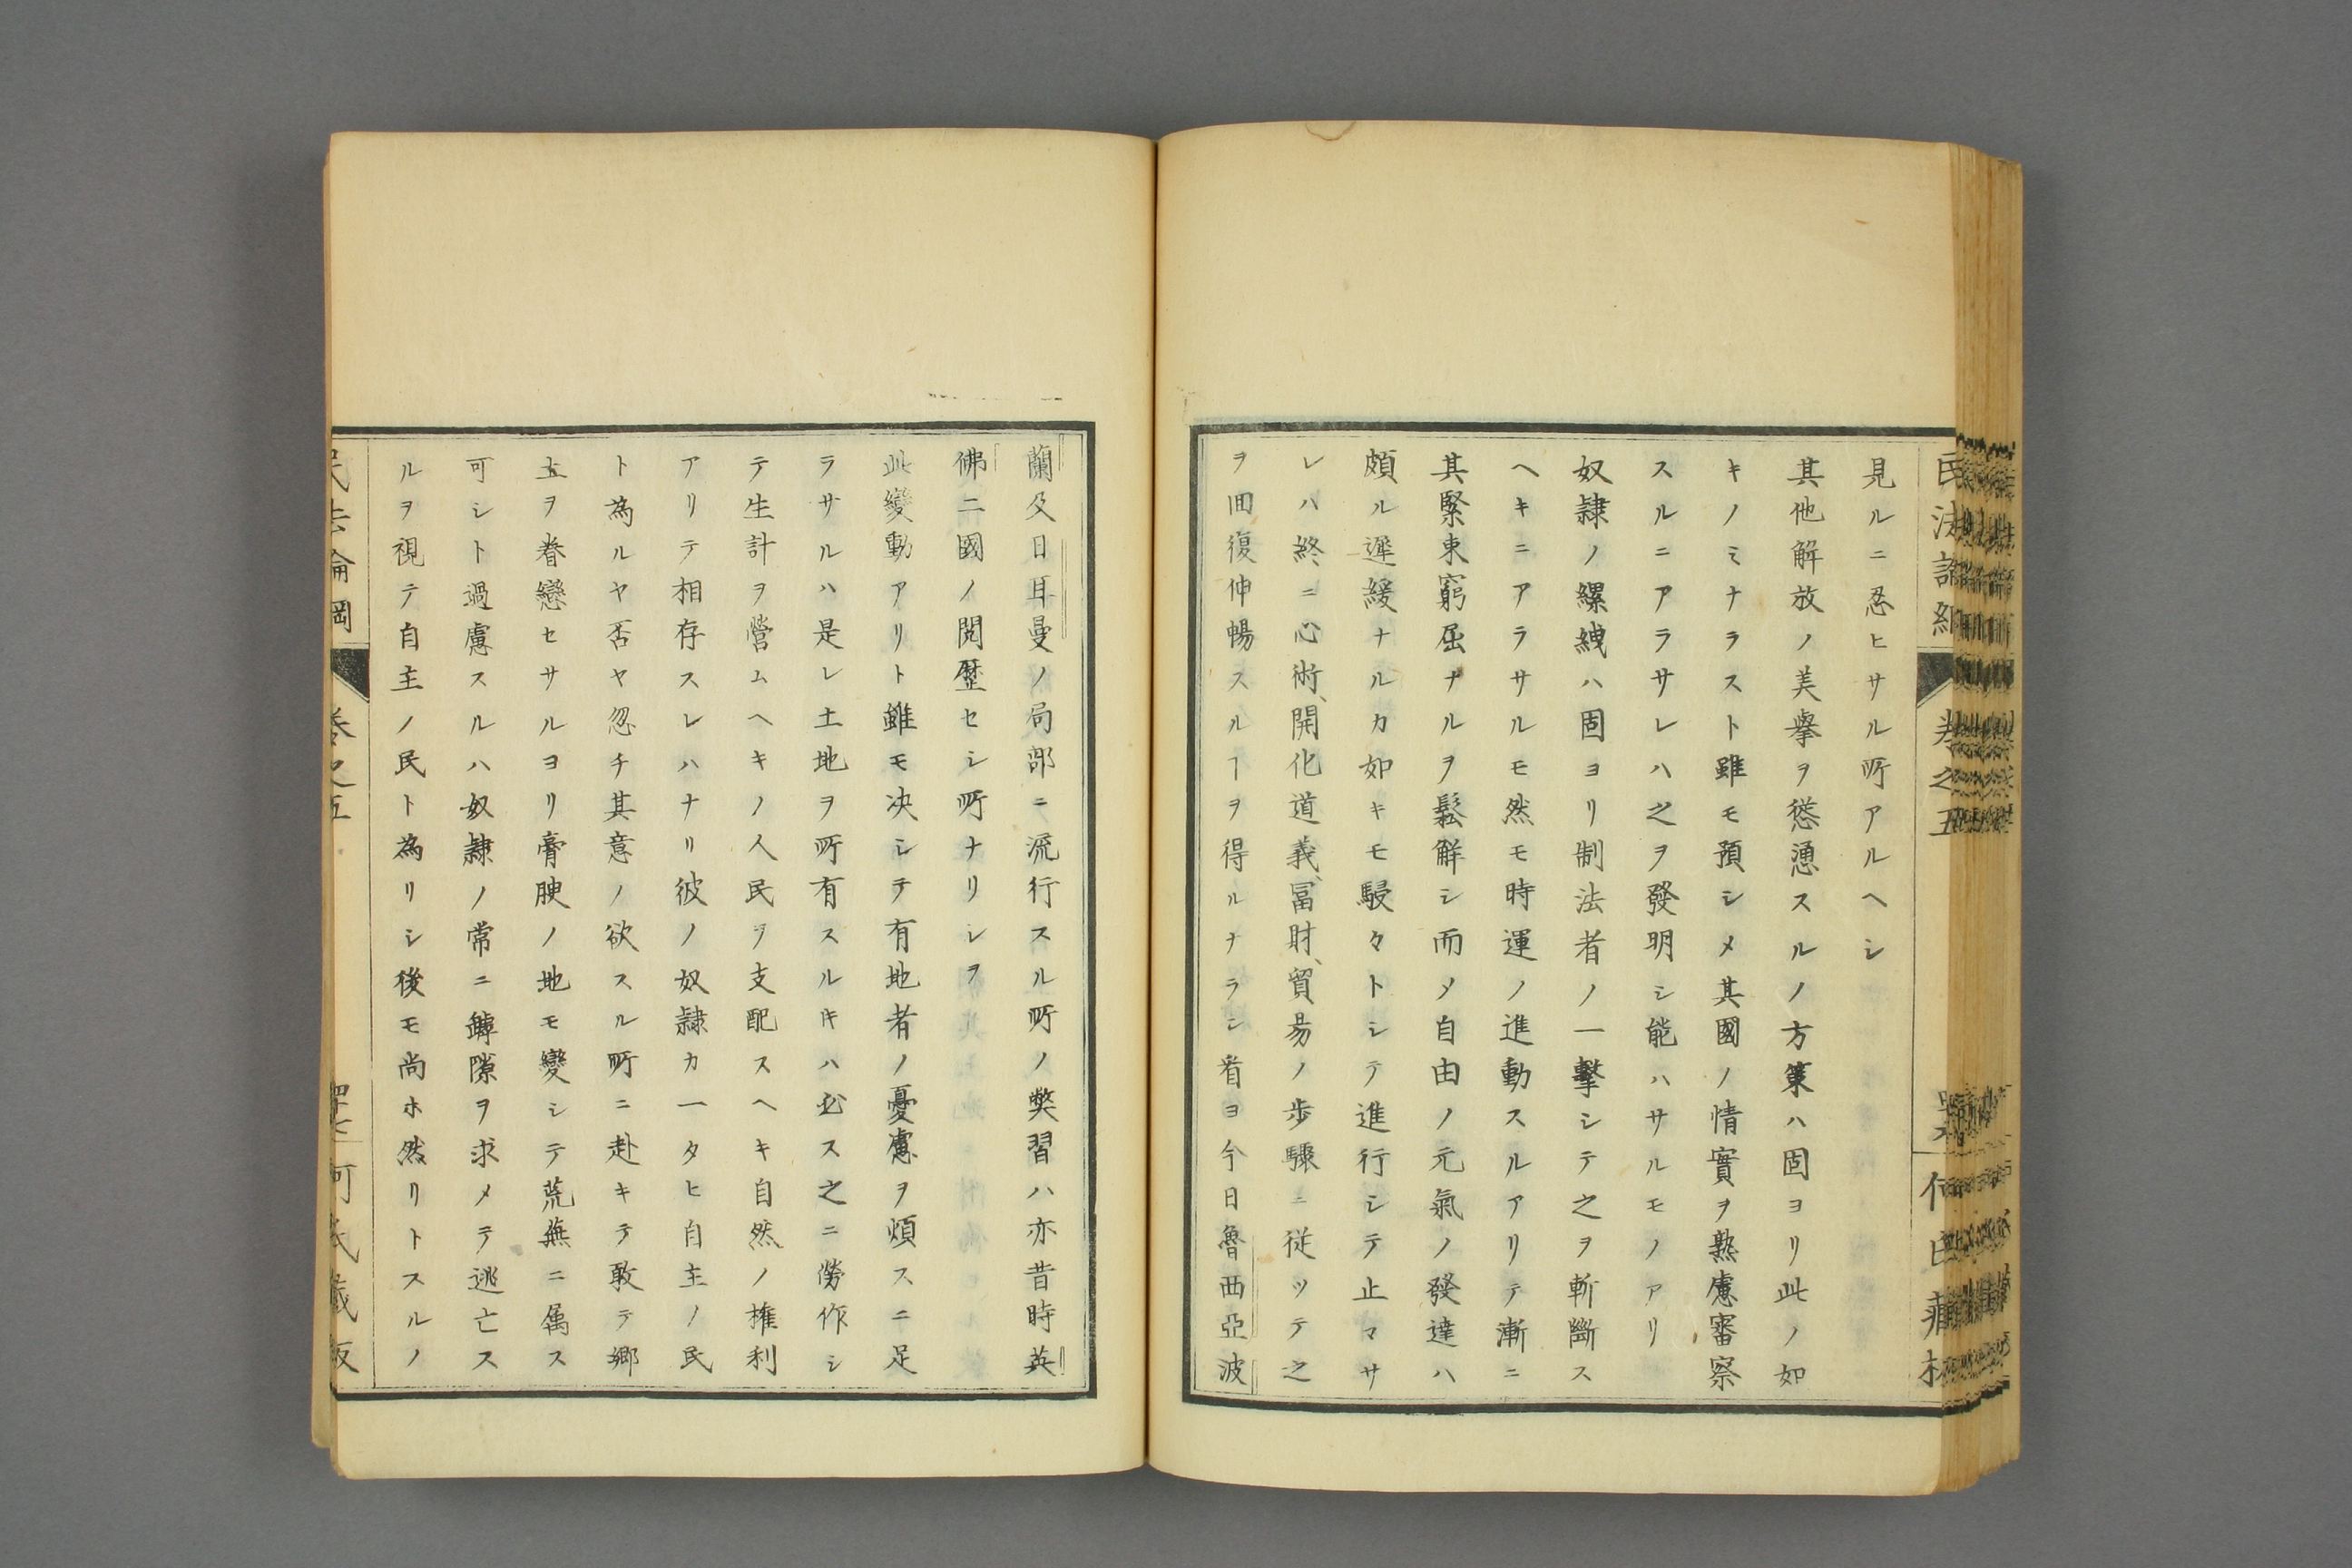 見ルニ忍ヒサル所アルヘシ
其他解放ノ美擧ヲ慫慂スルノ方策ハ固ヨリ此ノ如
キノミナラスト雖モ預シメ其國ノ情實ヲ熟慮審察
スルニアラサレハ之ヲ發明シ能ハサルモノアリ
奴隷ノ縲絏ハ固ヨリ制法者ノ一擊シテ之ヲ斬斷ス
ヘキニアラサルモ然モ時運ノ進動スルアリテ漸ニ
其緊束窮屈ナルヲ鬆解シ而メ自由ノ元氣ノ發達ハ
頗ル遲緩ナルカ如キモ駸々トシテ進行シテ止マサ
レハ終ニ心術、開化道義、冨財、貿易ノ歩驟ニ従ツテ之
ヲ囬復伸暢スルヿヲ得ルナラン看ヨ今日魯西亞波
蘭及日耳曼ノ局部ニ流行スル所ノ獘習ハ亦昔時英
佛二國ノ閲歴セシ所ナリシヲ
此變動アリト雖モ决シテ有地者ノ憂慮ヲ煩スニ足
ラサルハ是レ土地ヲ所有スル𪜈ハ必ス之ニ勞作シ
テ生計ヲ營ムヘキノ人民ヲ支配スヘキ自然ノ搉利
アリテ相存スレハナリ彼ノ奴隷カ一タヒ自主ノ民
ト為ルヤ否ヤ忽チ其意ノ欲スル所ニ赴キテ敢テ鄉
土ヲ眷戀セサルヨリ膏腴ノ地モ變シテ荒蕪ニ属ス
可シト過慮スルハ奴隷ノ常ニ罅隙ヲ求メテ逃亡ス
ルヲ視テ自主ノ民ト為リシ後モ尚ホ然リトスルノ